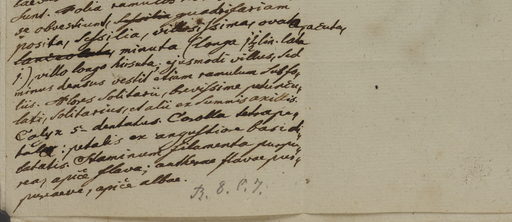 sunt. Folia ramulos
se obvestiunt, quadrifariam
posita, sessilia, villosissima, ovata, acuta,
minuta (longa 1½ lin. lata
1) villo longo hirsuta; ejusmodi villus, sed
minus densus vestit etiam ramulum sub fo-
liis. Flores solitarii, brevissime peduncu-
lati, solitarius, et alii ex summis axillis.
Calyx 5-dentatus. Corolla tetrape-
tala: petalis ex angustiore basi di-
latatis. Staminum filamenta purpu-
rea, apice flava; antherae flavae pur-
pureae, apice albae.
R. 8. P. 7.